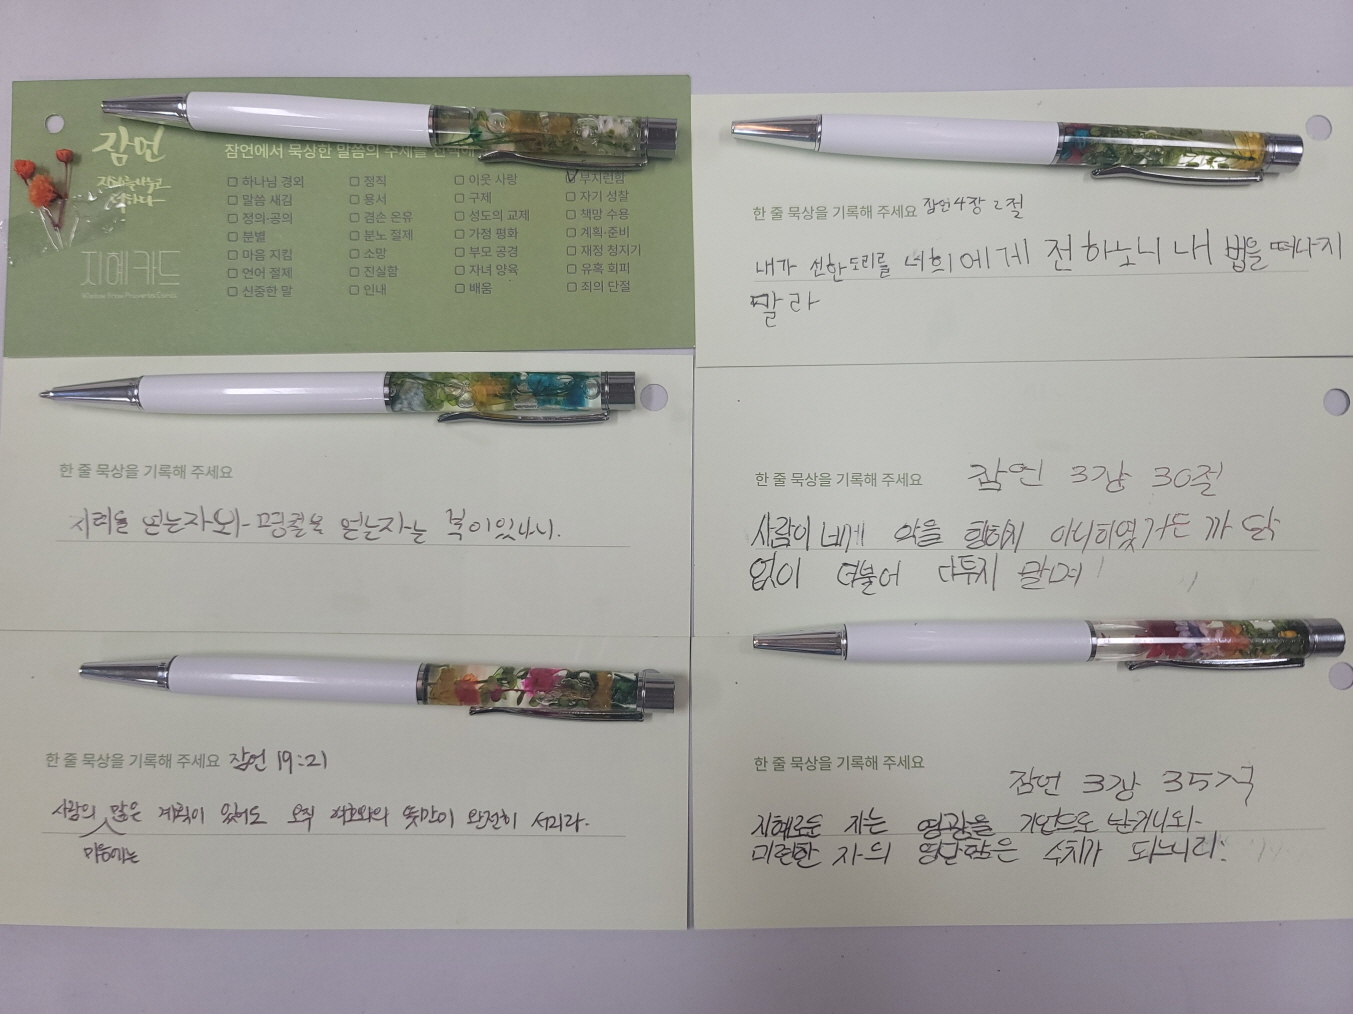 잠언
지혜카드
Wisdom from Proverbs Cards
잠언에서 묵상한 말씀의 주제를
하나님 경외
말씀 새김
정의·공의
분별
마음 지킴
언어 절제
신중한 말
정직
용서
겸손 온유
분노 절제
소망
진실함
인내
이웃 사랑
구제
성도의 교제
가정 평화
부모 공경
자녀 양육
배움
부지런함
자기 성찰
책망 수용
계획·준비
재정 청지기
유혹 회피
죄의 단절
한 줄 묵상을 기록해 주세요 잠언4장 2절
내가 선한도리를 너희에게 전하노니 내 법을 떠나지
말라
한 줄 묵상을 기록해 주세요
얻는자와 명철을 얻는자는 복이있나니.
한 줄 묵상을 기록해 주세요 잠언 3장 30절
사람이 네게 악을 행하지 아니하였거든 까닭
없이 더불어 다투지 말며
한 줄 묵상을 기록해 주세요 잠언 19:21
사람의 많은 계획이 있어도 오직 여호와의 뜻만이 완전히 서리라.
마음에는
한 줄 묵상을 기록해 주세요
잠언 3장 35절
지혜로운 자는 영광을 기업으로 받거니와
미련한 자의 영달함은 수치가 되느니라.